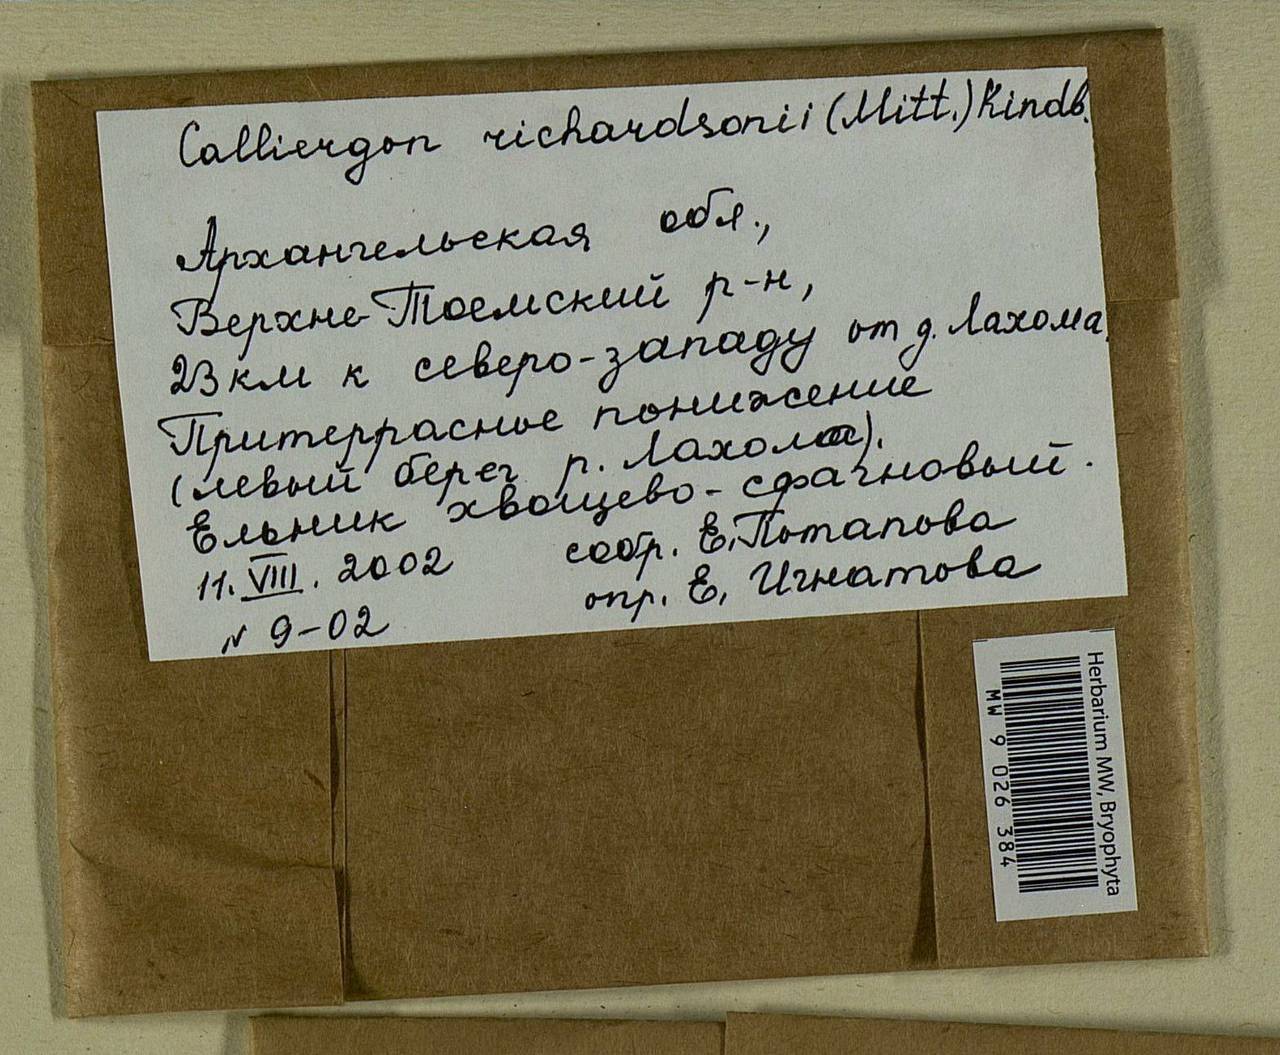 Calliergon richardsonii (Mitt.) Kindb.
Архангельская обл.,
Верхне-Тоемский р-н,
23 км к северо-западу от д. Лахома.
Притеррасное понижение
(левый берег р. Лахома).
Ельник хвощево-сфагновый.
11. VIII. 2002 собр. Е. Потапова
N 9-02 опр. Е. Игнатова
Herbarium MW, Bryophyta
MW 9 026 384